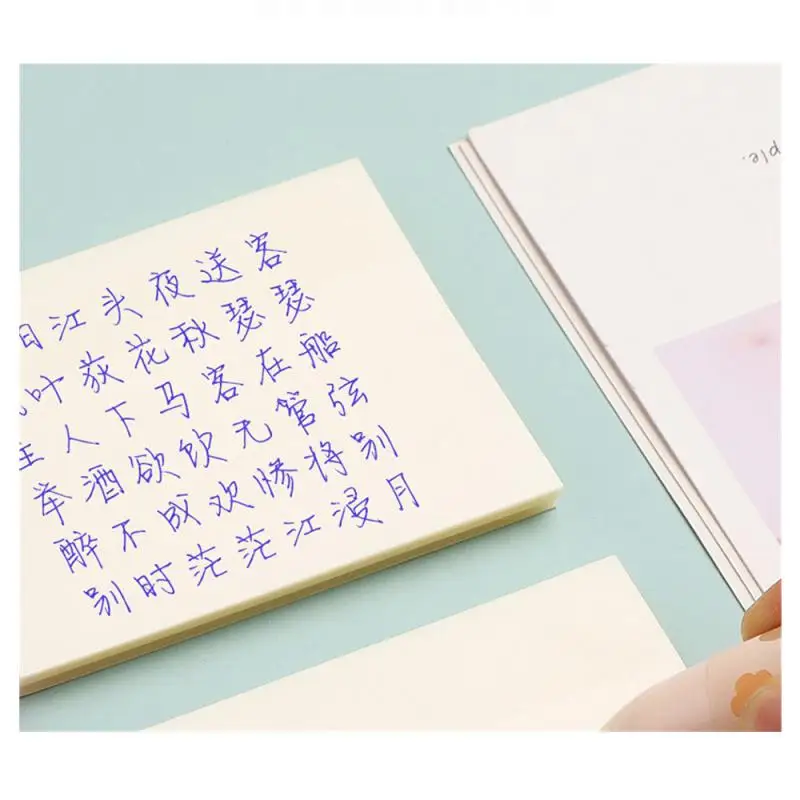 阳江头夜送客
叶荻花秋瑟瑟
主人下马客在船
举酒欲饮无管弦
醉不成欢惨将别
别时茫茫江浸月
ple.